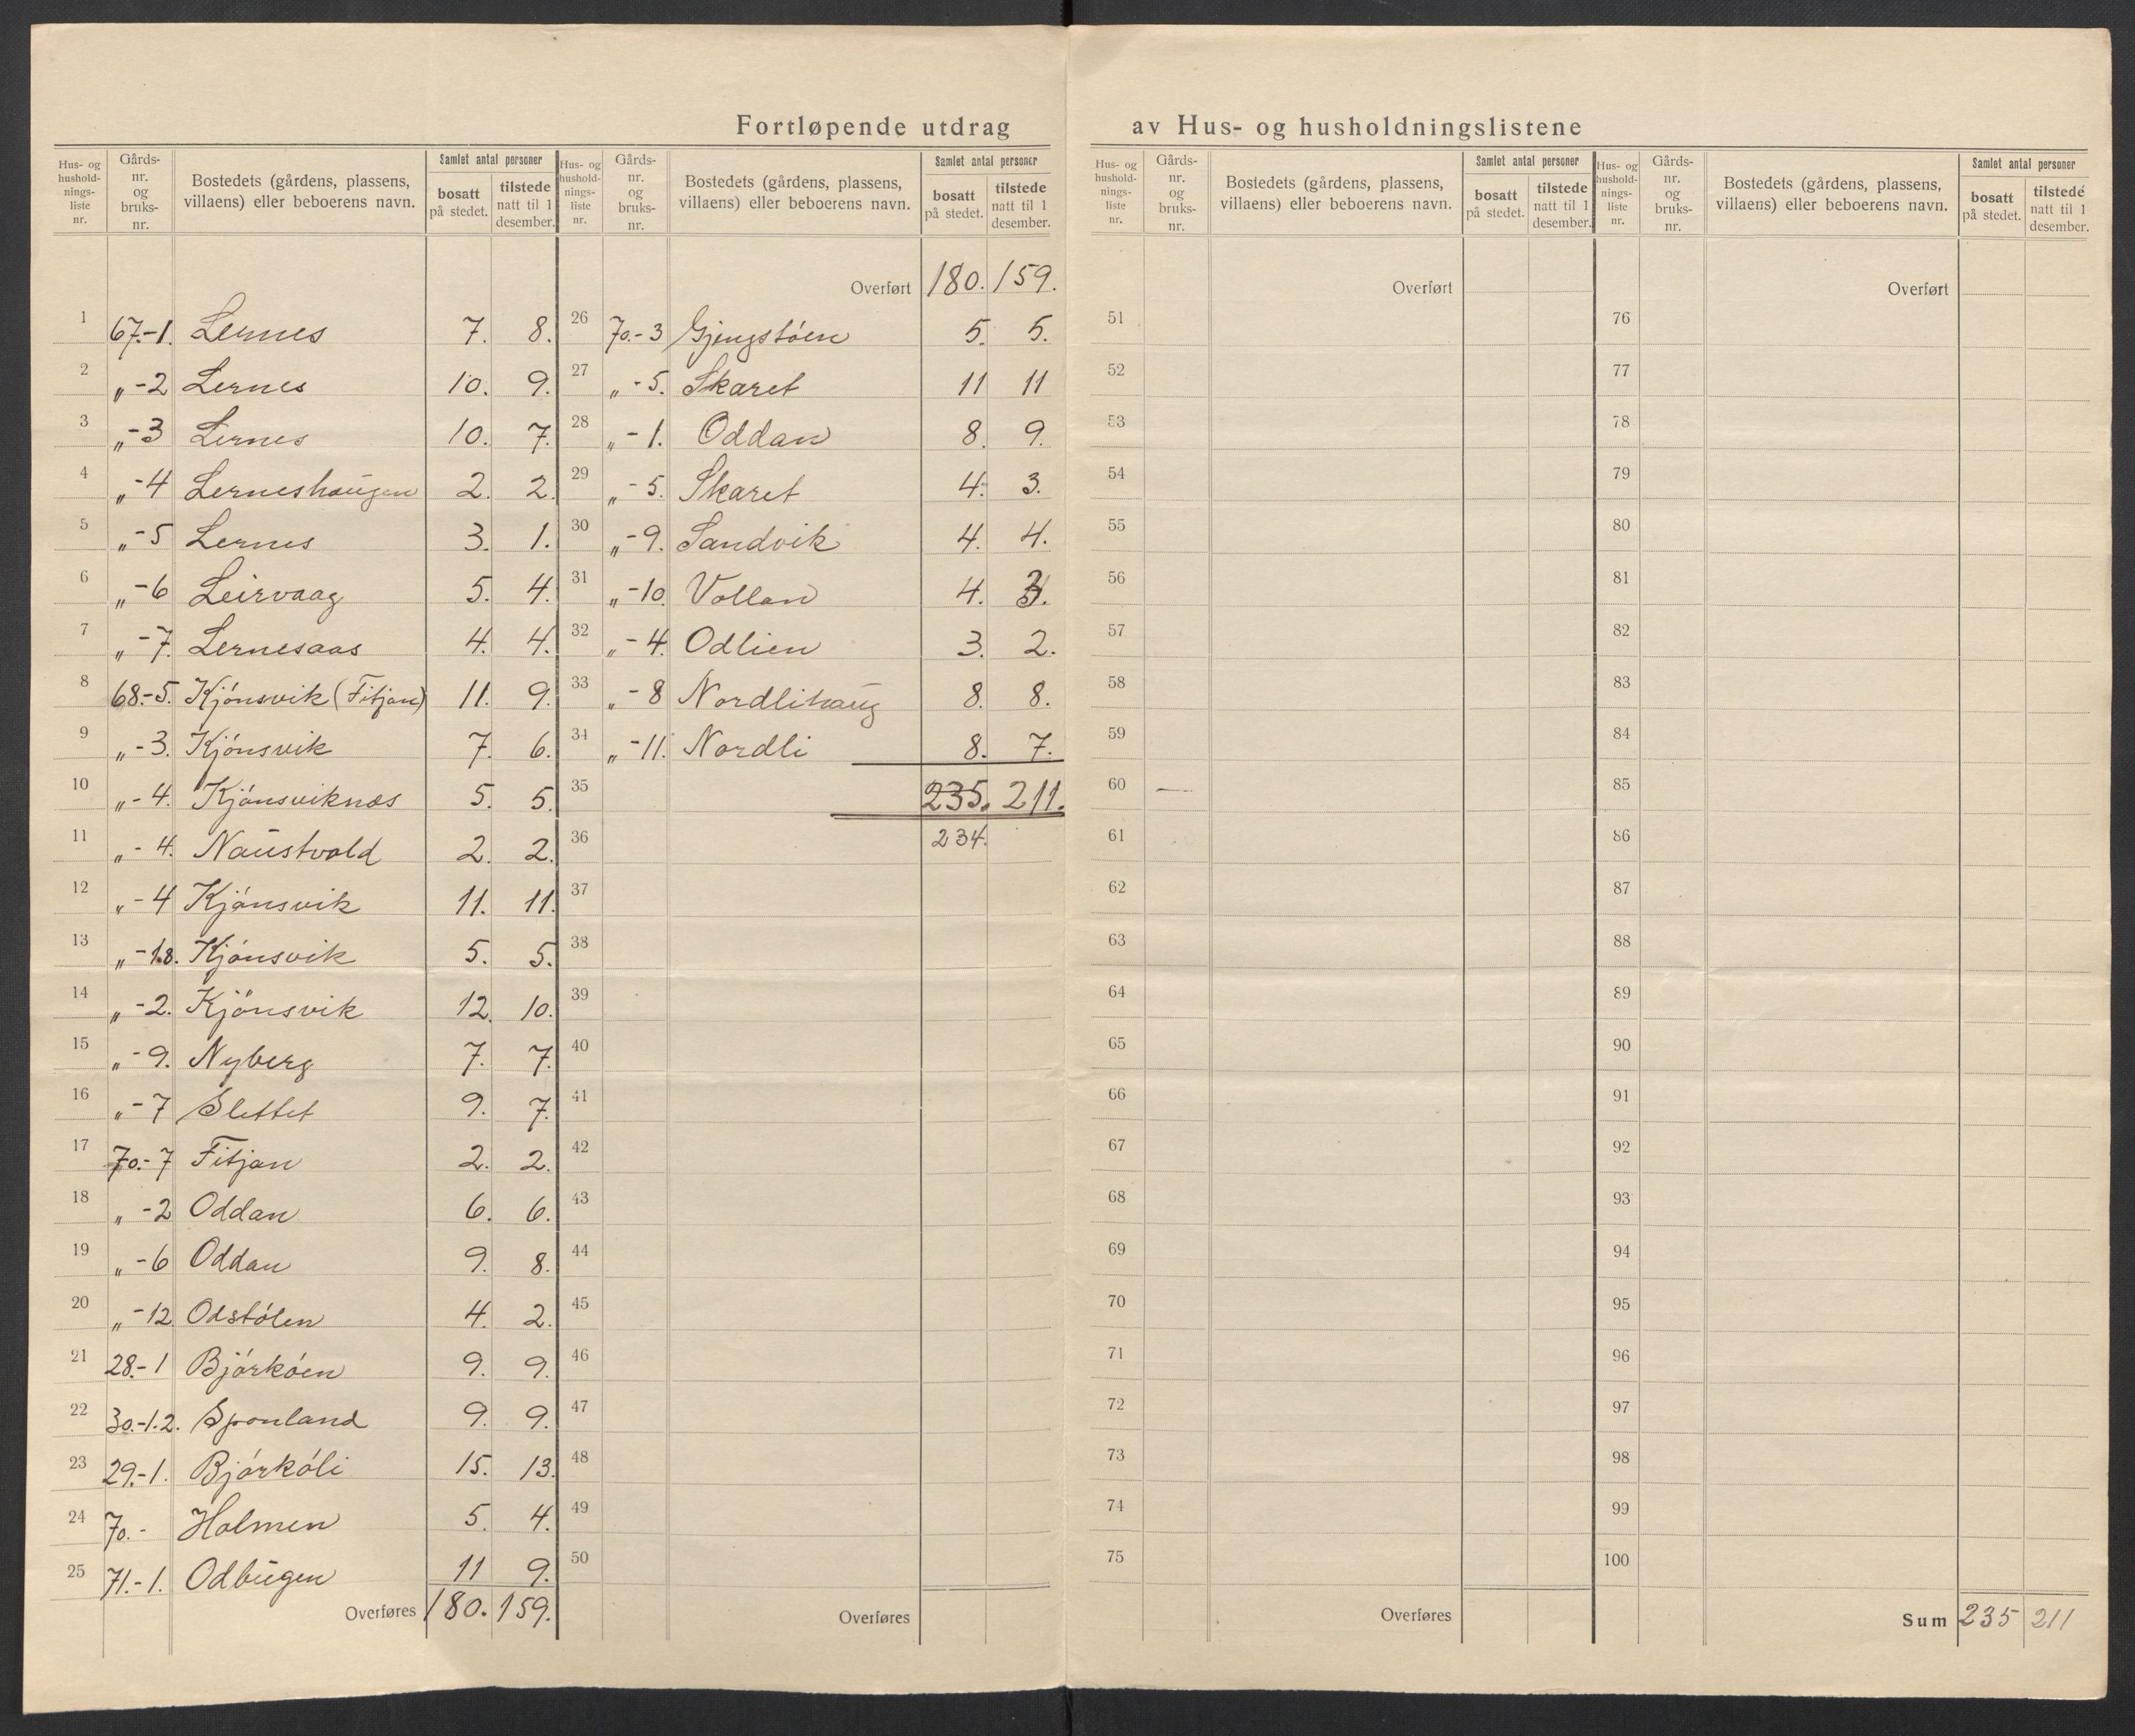 Fortløpende utdrag av Hus- og husholdningslistene
Hus- og husholdningsliste nr. | Gårdsnr. og bruksnr. | Bostedets (gårdens, plassens, villaens) eller beboerens navn. | Samlet antal personer | bosatt på stedet. | tilstede natt til 1 desember.
1 67.-1. Lernes 7. 8.
2 „-2 Lernes 10. 9.
3 „-3 Lernes 10. 7.
4 „-4 Lerneshaugen 2. 2.
5 „-5 Lernes 3. 1.
6 „-6 Leirvaag 5. 4.
7 „-7. Lernesaas 4. 4.
8 68.-5. Kjónsvik (Fitjan) 11. 9.
9 „-3. Kjónsvik 7. 6.
10 „-4. Kjónsviknes 5. 5.
11 „-4. Naustvold 2. 2.
12 „-4 Kjónsvik 11. 11.
13 „-1.8. Kjónsvik 5. 5.
14 „-2. Kjönsvik 12. 10.
15 „-9. Nyberg 7. 7.
16 „-7 Slettet 9. 7.
17 70.-7 Fitjan 2. 2.
18 „-2 Oddan 6. 6.
19 „-6 Oddan 9. 8.
20 „-12 Odstólen 4. 2.
21 28.-1 Bjórkóen 9. 9.
22 30.-1.2. Sponland 9. 9.
23 29.-1. Bjórkóli 15. 13.
24 70.- Holmen 5. 4.
25 71.-1. Odbugen 11 9.
Overføres 180. 159.
Hus- og husholdningsliste nr. | Gårdsnr. og bruksnr. | Bostedets (gårdens, plassens, villaens) eller beboerens navn. | Samlet antal personer | bosatt på stedet. | tilstede natt til 1 desember.
Overført 180. 159.
26 70.-3 Gjengstóen 5. 5.
27 „-5. Skaret 11 11
28 „-1. Oddan 8. 9.
29 „-5. Skaret 4. 3.
30 „-9. Sandvik 4. 4.
31 „-10. Vollan 4. 3.
32 „-4. Odlien 3. 2.
33 „-8 Nordlihaug 8. 8.
34 „-11. Nordli 8. 7.
35 235. 211.
36 234.
37
38
39
40
41
42
43
44
45
46
47
48
49
50
Overføres
Hus- og husholdningsliste nr. | Gårdsnr. og bruksnr. | Bostedets (gårdens, plassens, villaens) eller beboerens navn. | Samlet antal personer | bosatt på stedet. | tilstede natt til 1 desember.
Overført
51
52
53
54
55
56
57
58
59
60 —
61
62
63
64
65
66
67
68
69
70
71
72
73
74
75
Overføres
Hus- og husholdningsliste nr. | Gårdsnr. og bruksnr. | Bostedets (gårdens, plassens, villaens) eller beboerens navn. | Samlet antal personer | bosatt på stedet. | tilstede natt til 1 desember.
Overført
76
77
78
79
80
81
82
83
84
85
86
87
88
89
90
91
92
93
94
95
96
97
98
99
100
Sum 235 211